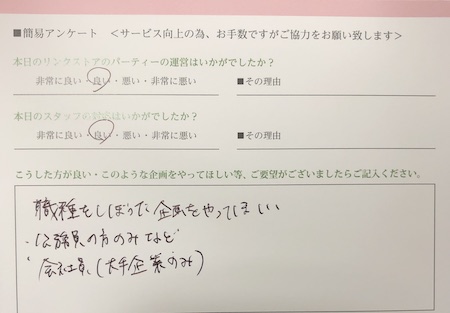 ■簡易アンケート <サービス向上の為、お手数ですがご協力をお願い致します>
本日のリンクストアのパーティーの運営はいかがでしたか?
非常に良い・良い・悪い・非常に悪い ■その理由
本日のスタッフの対応はいかがでしたか?
非常に良い・良い・悪い・非常に悪い ■その理由
こうした方が良い・このような企画をやってほしい等、ご要望がございましたらご記入ください。
職種をしぼった企画をやってほしい
・公務員の方のみなど
・会社員(大手企業のみ)